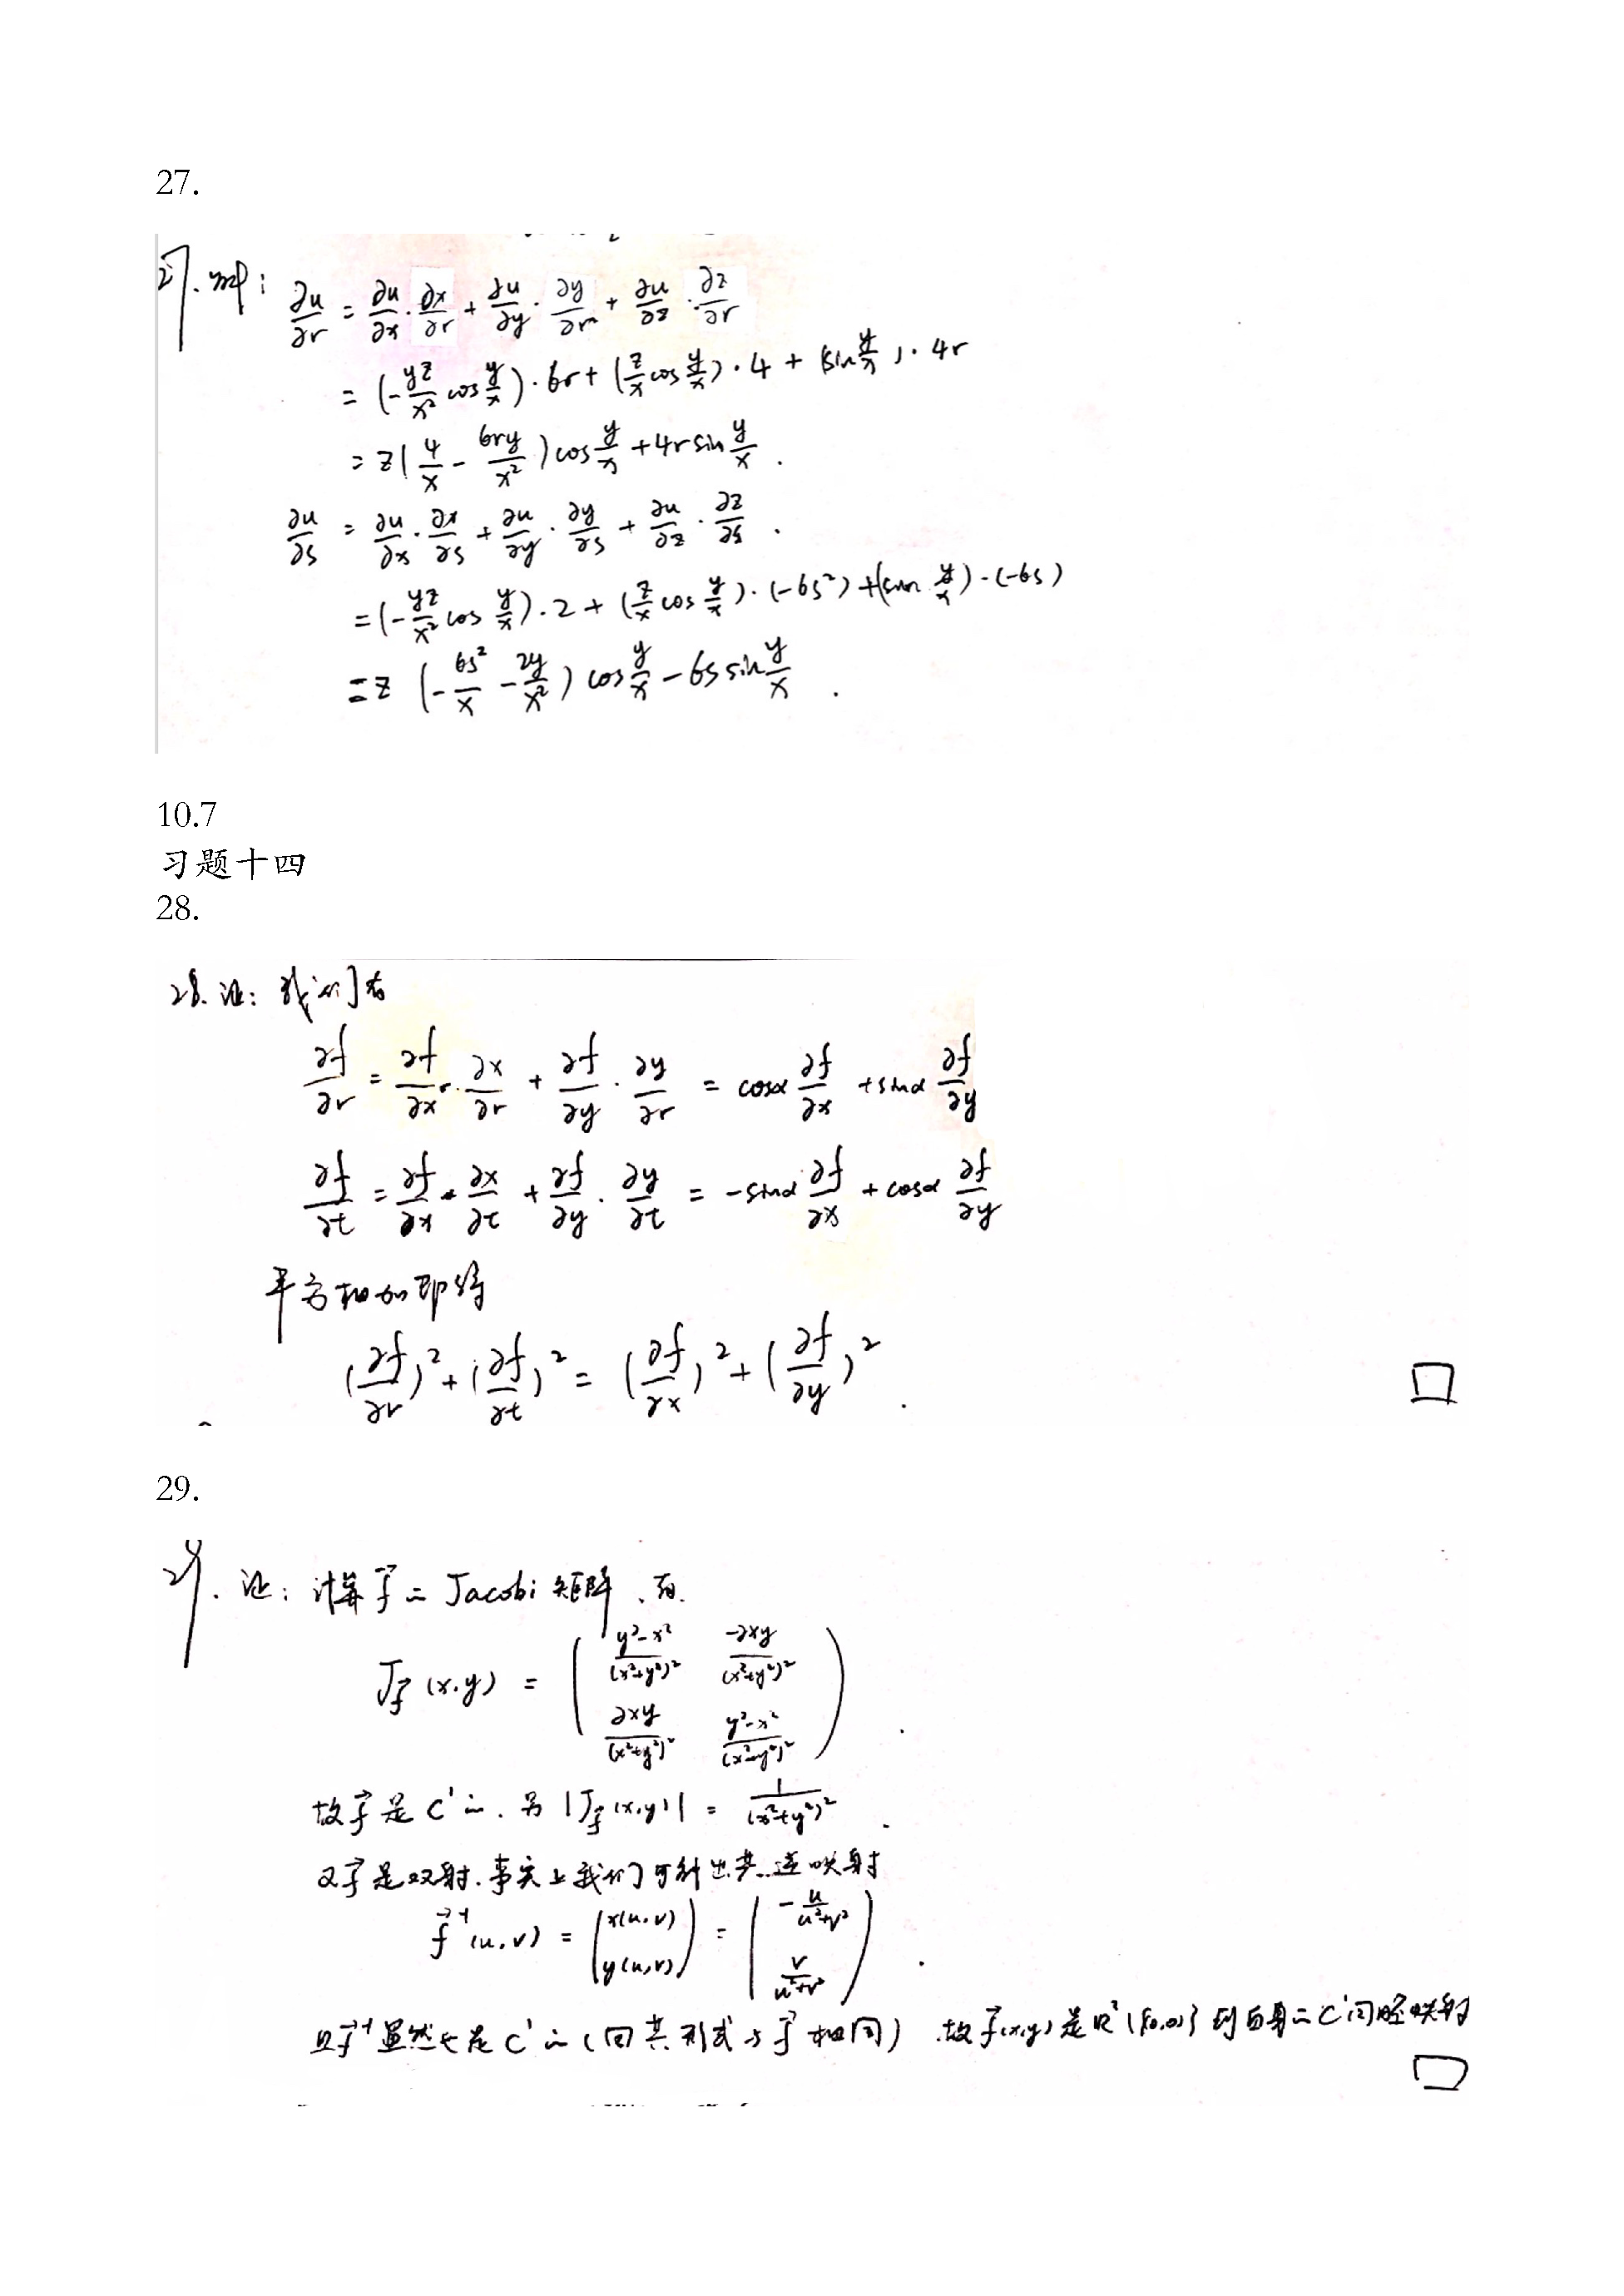 27.
27. 解: ∂u/∂r = ∂u/∂x · ∂x/∂r + ∂u/∂y · ∂y/∂r + ∂u/∂z · ∂z/∂r
= (-yz/x² cos y/x) · 6r + (z/x cos y/x) · 4 + (sin y/x) · 4r
= z(4/x - 6ry/x²) cos y/x + 4r sin y/x .
∂u/∂s = ∂u/∂x · ∂x/∂s + ∂u/∂y · ∂y/∂s + ∂u/∂z · ∂z/∂s .
= (-yz/x² cos y/x) · 2 + (z/x cos y/x) · (-6s²) + (sin y/x) · (-6s)
= z (-6s²/x - 2y/x²) cos y/x - 6s sin y/x .
10.7
习题十四
28.
28. 证: 我们有
∂f/∂r = ∂f/∂x · ∂x/∂r + ∂f/∂y · ∂y/∂r = cosα ∂f/∂x + sinα ∂f/∂y
∂f/∂t = ∂f/∂x · ∂x/∂t + ∂f/∂y · ∂y/∂t = -sinα ∂f/∂x + cosα ∂f/∂y
平方相加即得
(∂f/∂r)² + (∂f/∂t)² = (∂f/∂x)² + (∂f/∂y)² . □
29.
29. 证: 计算 f⃗ 的 Jacobi 矩阵, 有.
J_f⃗ (x,y) = ( (y²-x²)/(x²+y²)² -2xy/(x²+y²)² ; 2xy/(x²+y²)² (y²-x²)/(x²+y²)² ) .
故 f⃗ 是 C¹ 的. 另 |J_f⃗ (x,y)| = 1/(x²+y²)² .
又 f⃗ 是双射. 事实上我们可解出其逆映射
f⃗⁻¹(u,v) = ( x(u,v) ; y(u,v) ) = ( -u/(u²+v²) ; v/(u²+v²) ) .
且 f⃗⁻¹ 显然也是 C¹ 的 (因其形式与 f⃗ 相同) .故 f⃗(x,y) 是 R²\{(0,0)} 到自身的 C¹ 同胚映射
□